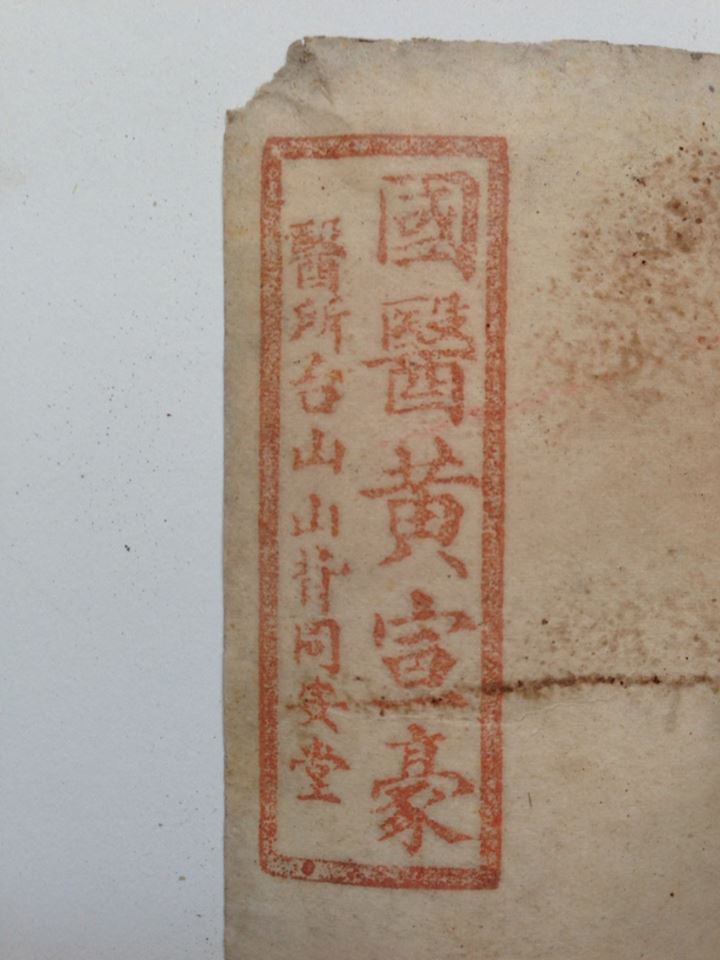 國醫黃宣豪
醫所台山山背同安堂